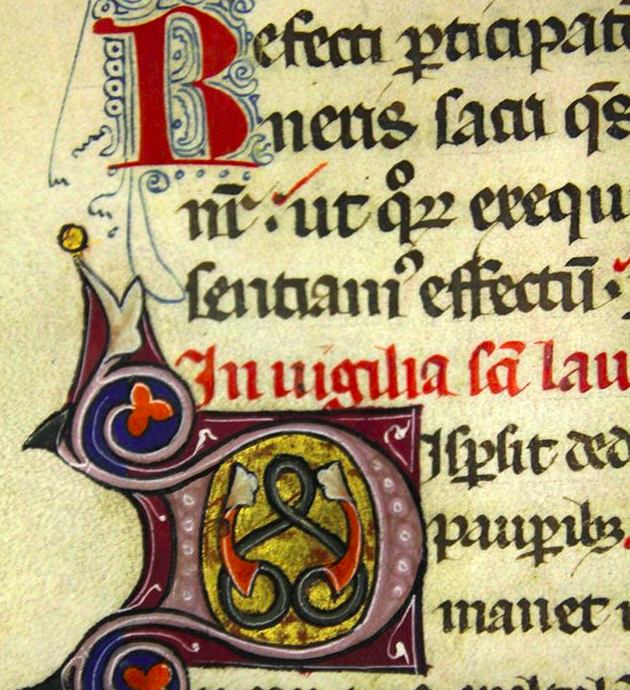 Refecti p̱ticipat
neris sacri q̄s
nr̄: ut qͦꝝ exequi
sentiamꝰ effectū:
In uigilia sc̄i lau
DIspsit ded
paup̱ibꝫ.
manet